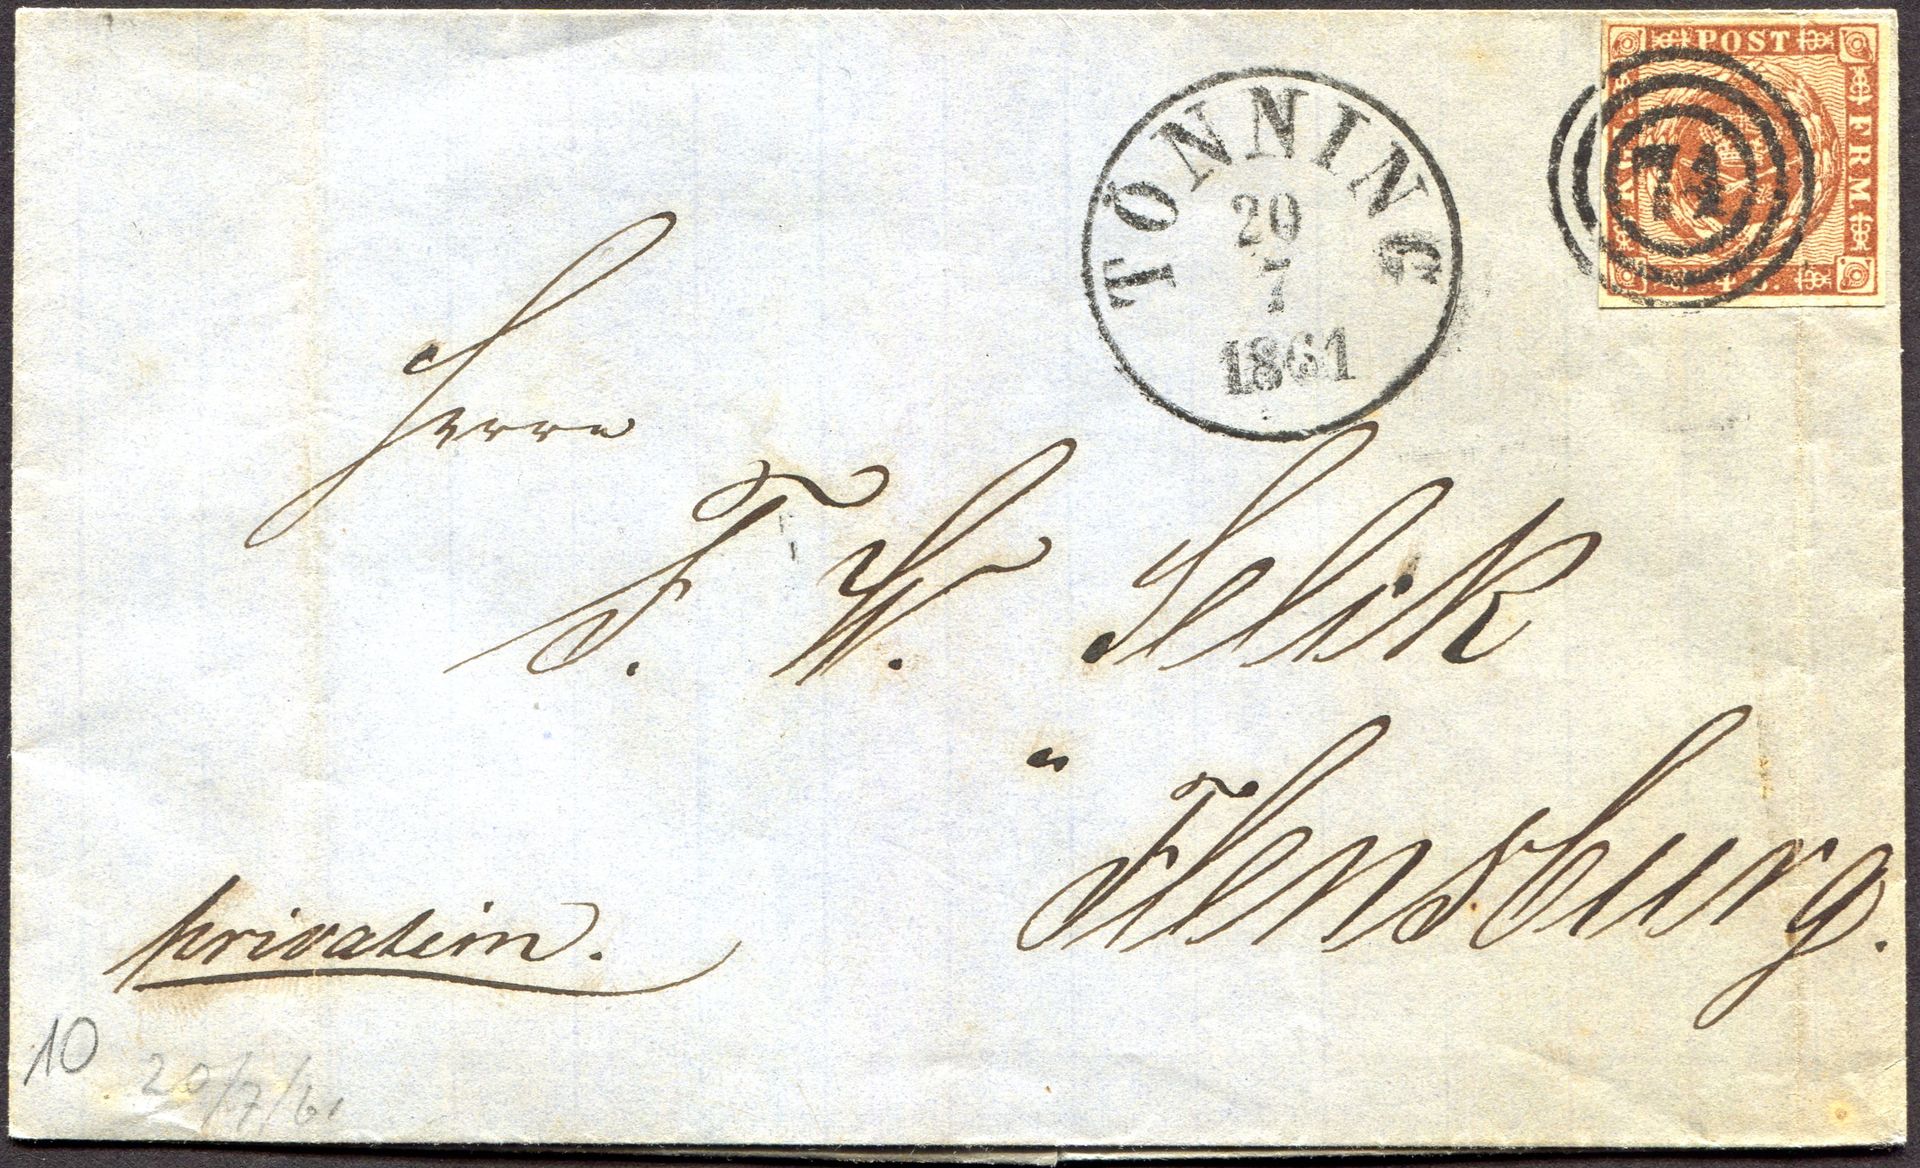 POST
FRM
4 S.
71
TÖNNING
20
7
1861
Herrn
F. W. Selik
Flensburg.
privatim.
10
20/7/61